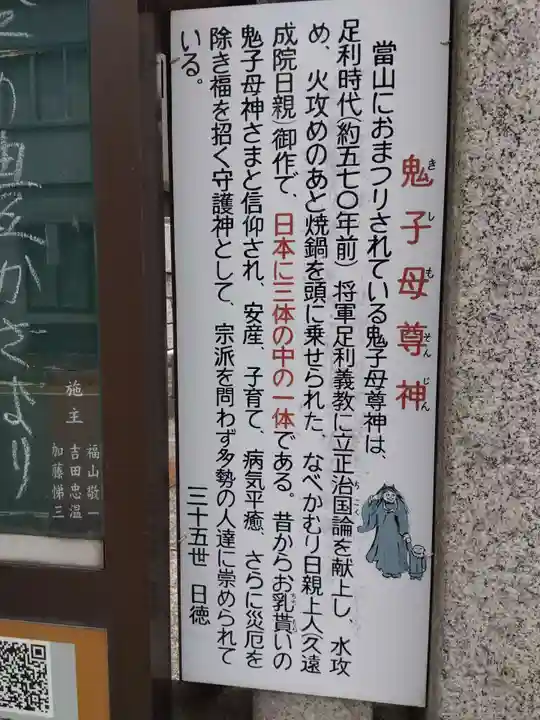 鬼子母尊神
きしもそんじん
當山におまつりされている鬼子母尊神は、
足利時代(約五七〇年前)将軍足利義教に立正治国論を献上し、水攻
ちこく
め、火攻めのあと焼鍋を頭に乗せられた、なべかむり日親上人(久遠
成院日親)御作で、日本に三体の中の一体である。昔からお乳貰いの
鬼子母神さまと信仰され、安産、子育て、病気平癒、さらに災厄を
除き福を招く守護神として、宗派を問わず多勢の人達に崇められて
いる。
三十五世 日徳
施主
福山敬一
吉田忠温
加藤悌三